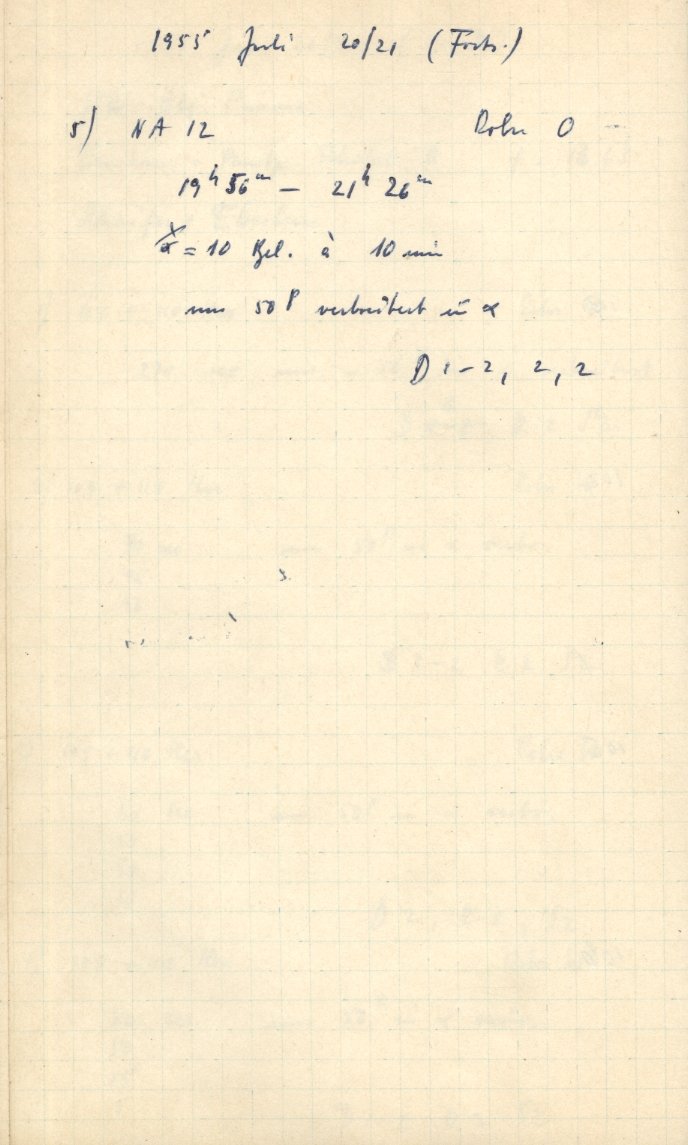 1955 Juli 20/21 (Forts.)
5) NA 12 Rohr O
19ʰ 56ᵐ – 21ʰ 26ᵐ
= 10 Bel. à 10 min
um 50ᴾ verbreitert in α
D 1-2, 2, 2